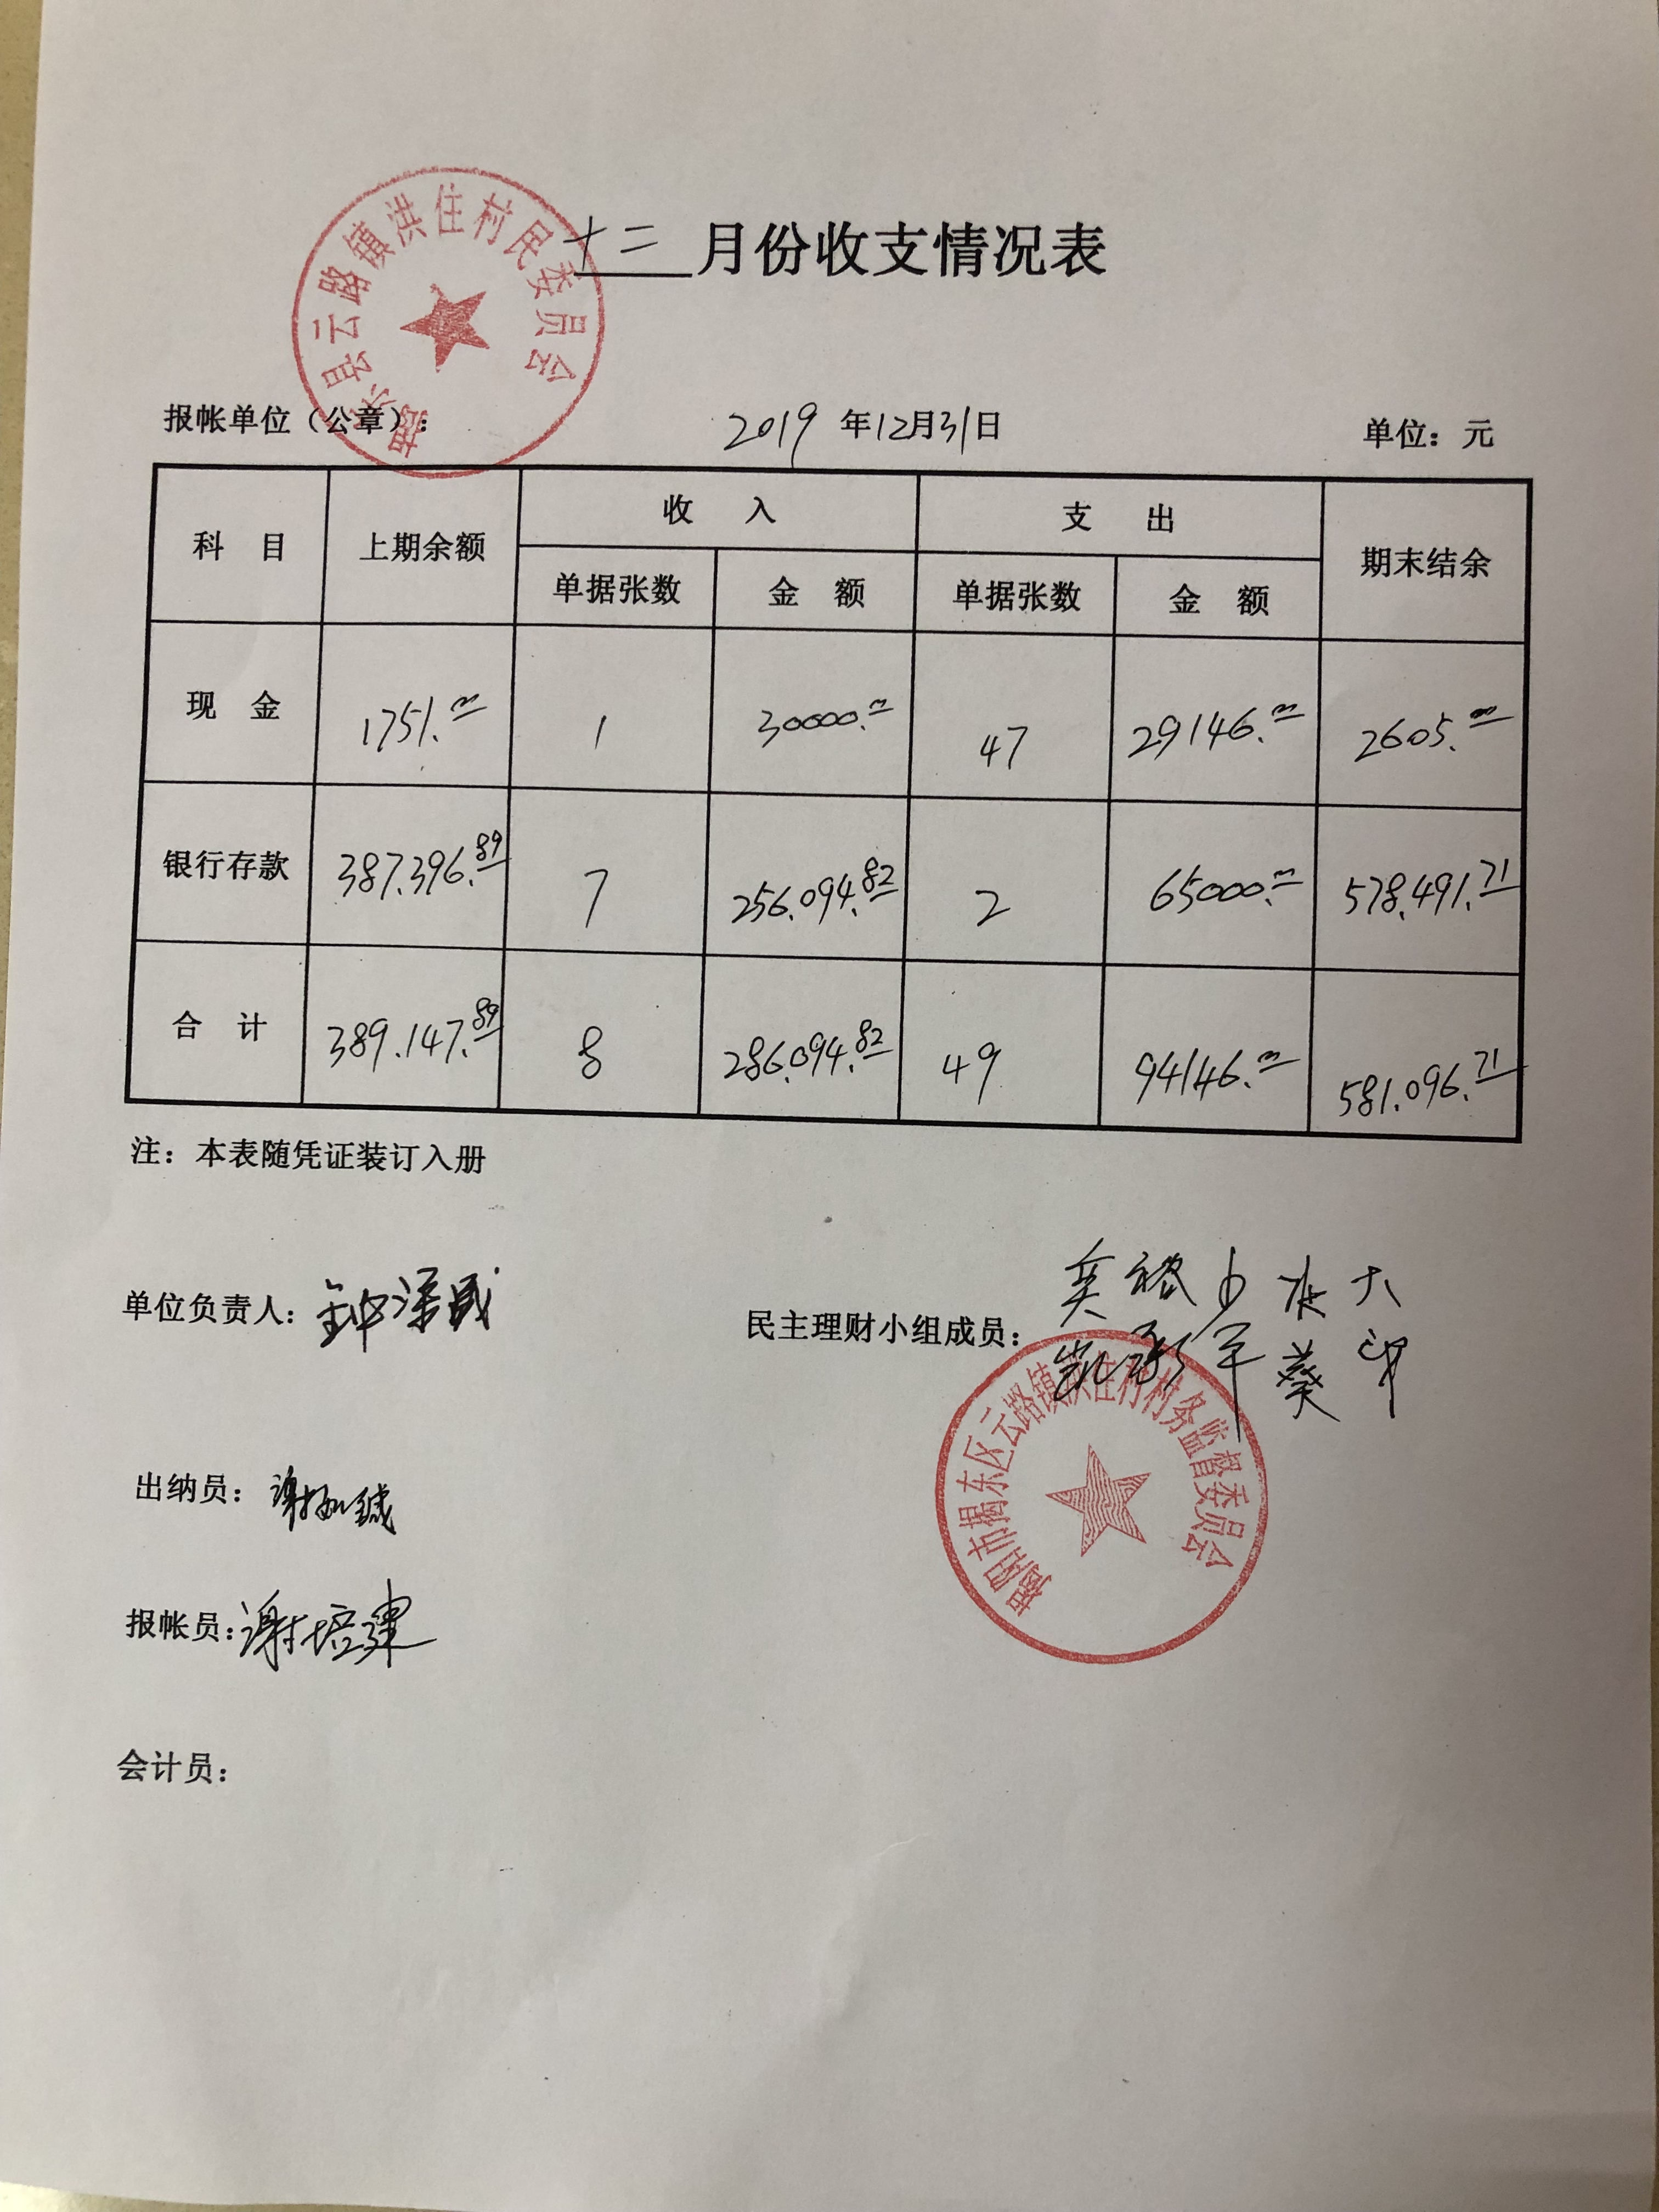 揭东县云路镇洪住村民委员会
十二月份收支情况表
报帐单位（公章）： 2019年12月31日 单位：元
科目 上期余额 收入 支出 期末结余
单据张数 金额 单据张数 金额
现金 1751.00 1 30000.00 47 29146.00 2605.00
银行存款 387.396.89 7 256.094.82 2 65000.00 578.491.71
合计 389.147.89 8 286.094.82 49 94146.00 581.096.71
注：本表随凭证装订入册
单位负责人：
民主理财小组成员：
揭阳市揭东区云路镇洪住村村务监督委员会
出纳员：谢
报帐员：谢培建
会计员：